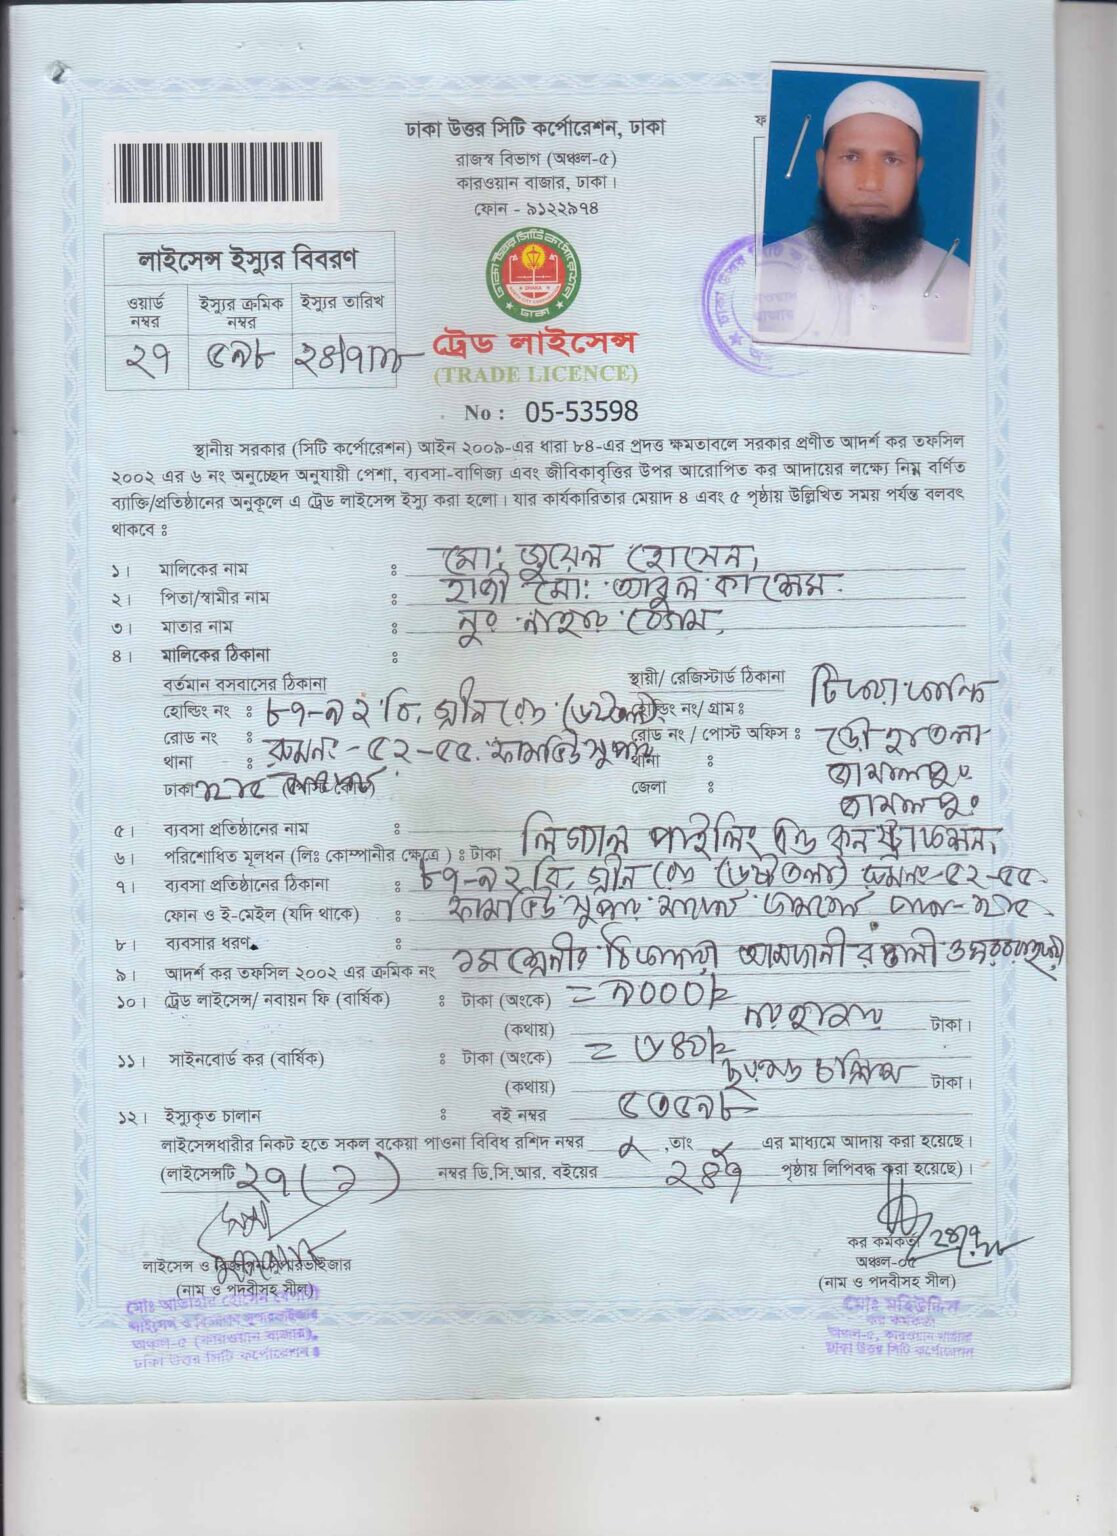 ঢাকা উত্তর সিটি কর্পোরেশন, ঢাকা
রাজস্ব বিভাগ (অঞ্চল-৫)
কারওয়ান বাজার, ঢাকা।
ফোন - ৯১২২৯৭৪
লাইসেন্স ইস্যুর বিবরণ
ওয়ার্ড নম্বর
ইস্যুর ক্রমিক নম্বর
ইস্যুর তারিখ
২৭ ৫৯৮
ট্রেড লাইসেন্স
(TRADE LICENCE)
No : 05-53598
স্থানীয় সরকার (সিটি কর্পোরেশন) আইন ২০০৯-এর ধারা ৮৪-এর প্রদত্ত ক্ষমতাবলে সরকার প্রণীত আদর্শ কর তফসিল
২০০২ এর ৬ নং অনুচ্ছেদ অনুযায়ী পেশা, ব্যবসা-বাণিজ্য এবং জীবিকাবৃত্তির উপর আরোপিত কর আদায়ের লক্ষ্যে নিম্ন বর্ণিত
ব্যাক্তি/প্রতিষ্ঠানের অনুকূলে এ ট্রেড লাইসেন্স ইস্যু করা হলো। যার কার্যকারিতার মেয়াদ ৪ এবং ৫ পৃষ্ঠায় উল্লিখিত সময় পর্যন্ত বলবৎ
থাকবে ঃ
১। মালিকের নাম ঃ মো: জুয়েল হোসেন,
২। পিতা/স্বামীর নাম ঃ হাজী মো: আবুল কাশেম
৩। মাতার নাম ঃ নুর নাহার বেগম,
৪। মালিকের ঠিকানা ঃ
বর্তমান বসবাসের ঠিকানা স্থায়ী/ রেজিস্টার্ড ঠিকানা
হোল্ডিং নং ঃ ৮৭-৯২ বি, গ্রীন রোড হোল্ডিং নং/ গ্রাম ঃ
রোড নং ঃ রুমনং-৫২-৫৫ রোড নং / পোস্ট অফিস ঃ
থানা ঃ থানা ঃ জামালপুর
ঢাকা (পোস্ট কোড) জেলা ঃ জামালপুর
৫। ব্যবসা প্রতিষ্ঠানের নাম ঃ পাইলিং এন্ড কনস্ট্রাকশন,
৬। পরিশোধিত মূলধন (লিঃ কোম্পানীর ক্ষেত্রে) ঃ টাকা
৭। ব্যবসা প্রতিষ্ঠানের ঠিকানা ঃ ৮৭-৯২ বি, গ্রীন রোড রুমনং-৫২-৫৫
ফোন ও ই-মেইল (যদি থাকে) ঃ ফার্মভিউ সুপার মার্কেট
৮। ব্যবসার ধরণ ঃ
৯। আদর্শ কর তফসিল ২০০২ এর ক্রমিক নং ১ম শ্রেনীর ঠিকাদারী আমদানী রপ্তানী ও সরবরাহকারী
১০। ট্রেড লাইসেন্স/ নবায়ন ফি (বার্ষিক) ঃ টাকা (অংকে) = ৯০০০/=
(কথায়) নয় হাজার টাকা।
১১। সাইনবোর্ড কর (বার্ষিক) ঃ টাকা (অংকে) = ৬৪০/=
(কথায়) ছয়শত চল্লিশ টাকা।
১২। ইস্যুকৃত চালান ঃ বই নম্বর ৫৩৫৯৮
লাইসেন্সধারীর নিকট হতে সকল বকেয়া পাওনা বিবিধ রশিদ নম্বর ,তাং এর মাধ্যমে আদায় করা হয়েছে।
(লাইসেন্সটি ২৭(১) নম্বর ডি.সি.আর. বইয়ের পৃষ্ঠায় লিপিবদ্ধ করা হয়েছে)।
লাইসেন্স ও বিজ্ঞাপন সুপারভাইজার
(নাম ও পদবীসহ সীল)
কর কর্মকর্তা
অঞ্চল-০৫
(নাম ও পদবীসহ সীল)
লাইসেন্স ও বিজ্ঞাপন সুপারভাইজার
অঞ্চল-৫ (কারওয়ান বাজার),
ঢাকা উত্তর সিটি কর্পোরেশন।
মোঃ মহিউদ্দিন
কর কর্মকর্তা
অঞ্চল-৫, কারওয়ান বাজার
ঢাকা উত্তর সিটি কর্পোরেশন